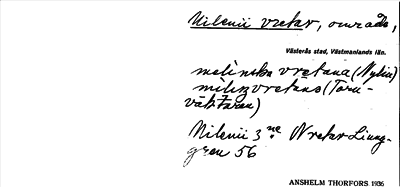 Milenii vretar, område,
Västerås stad, Västmanlands län.
melinska vretana (Nylin)
(Toru-
väktaren)
Milenii 3 ne Vretar Ljung-
gren 56
ANSHELM THORFORS 1936